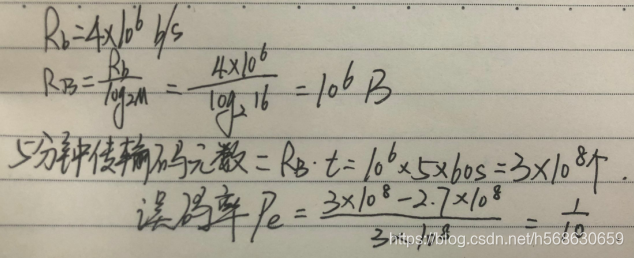 Rb=4×10⁶ b/s
RB=Rb/log₂M = 4×10⁶/log₂16 = 10⁶ B
5分钟传输码元数=RB·t=10⁶×5×60s=3×10⁸个.
误码率Pe=3×10⁸-2.7×10⁸/3×10⁸=1/10
https://blog.csdn.net/h563630659